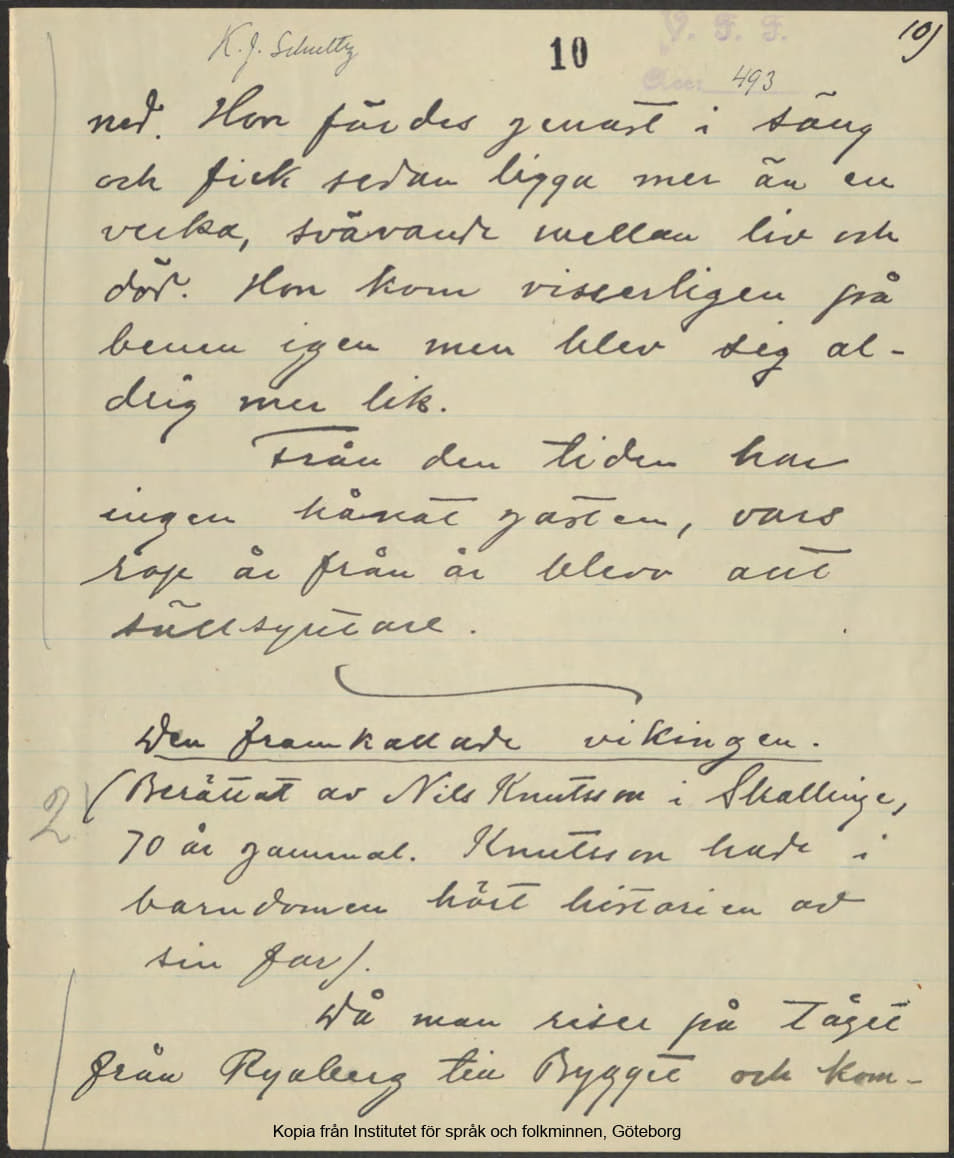 K. J. Schultz
10
V. F. F.
10)
Acc. 493
ned. Hon fördes genast i säng
och fick sedan ligga mer än en
vecka, svävande mellan liv och
död. Hon kom visserligen på
benen igen men blev sig al-
drig mer lik.
Från den tiden har
ingen hånat gasten, vars
rop år från år blevo allt
sällsyntare.
Den framkallade vikingen.
2
(Berättat av Nils Knutsson i Skallinge,
70 år gammal. Knutsson hade i
barndomen hört historien av
sin far).
Då man reser på tåget
från Ryaberg till Bygget och kom-
Kopia från Institutet för språk och folkminnen, Göteborg